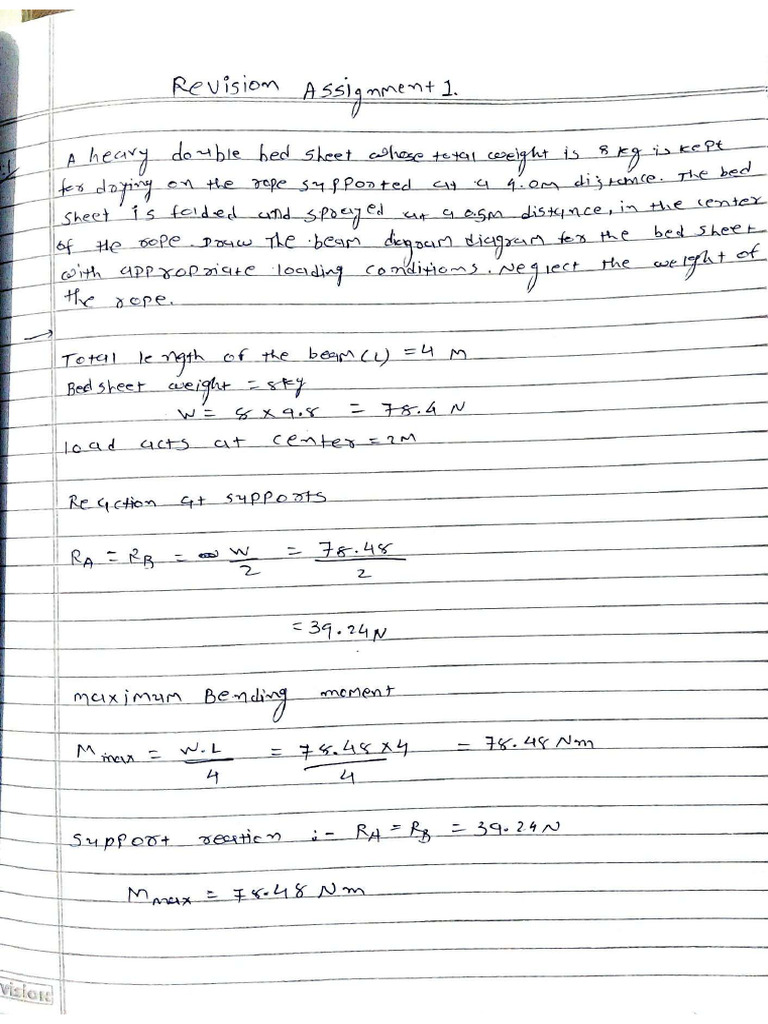 Revision Assignment 1.
A heavy double bed sheet whose total weight is 8 kg is kept
for drying on the rope supported at a 4.0m distance. The bed
sheet is folded and sprayed at a 0.5m distance, in the center
of the rope. Draw The beam diagram diagram for the bed sheet
with appropriate loading conditions. Neglect the weight of
the rope.
→
Total length of the beam (L) = 4 M
Bed sheet weight = 8kg
W = 8 x 9.8 = 78.4 N
load acts at center = 2M
Reaction at supports
RA = RB = W/2 = 78.48/2
= 39.24 N
maximum Bending moment
M max = W.L/4 = 78.48 x4/4 = 78.48 Nm
Support reaction :- RA = RB = 39.24 N
M max = 78.48 Nm
vision